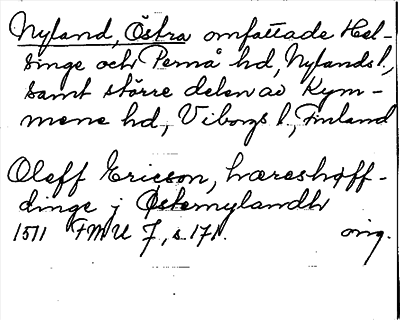 Nyland, Östra omfattade Hel-
singe och Pernå hd, Nylands l.,
samt större delen av Kym-
mene hd, Viborgs l., Finland
Oleff Ericson, hæreshøff-
dinge j Østernylandh
1511 FMU 7, s. 171. orig.